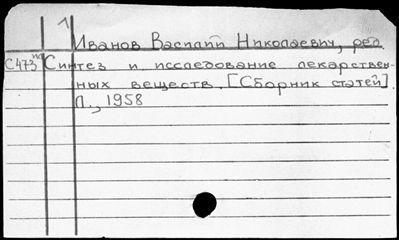 1
Иванов Василий Николаевич, ред.
С473т Синтез и исследование лекарствен-
ных веществ. [Сборник статей]
Л., 1958